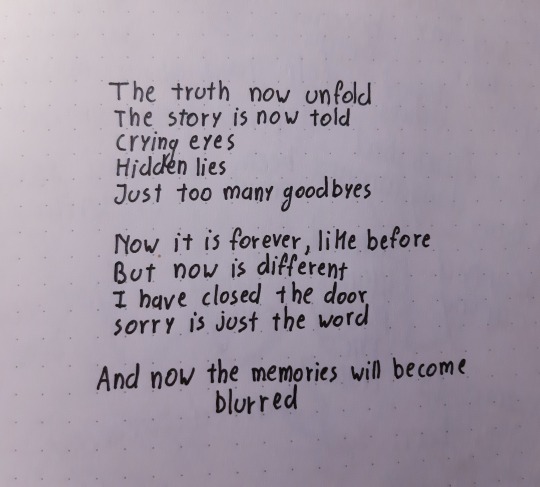 The truth now unfold
The story is now told
Crying eyes
Hidden lies
Just too many goodbyes
Now it is forever, like before
But now is different
I have closed the door
sorry is just the word
And now the memories will become
blurred